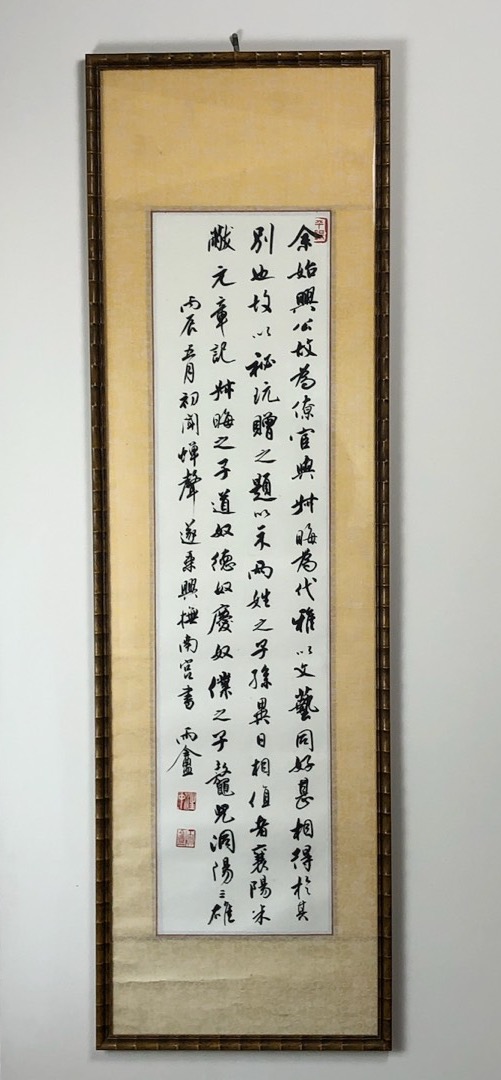 余始興公故為僚官與叔晦為代雅以文藝同好甚相得於其
別也故以秘玩贈之題以示兩姓之子孫異日相值者襄陽米
黻元章記叔晦之子道奴德奴慶奴僕之子鰲兒洞陽三雄
丙辰五月初聞蟬聲遂乘興撫南宮書 雨盦